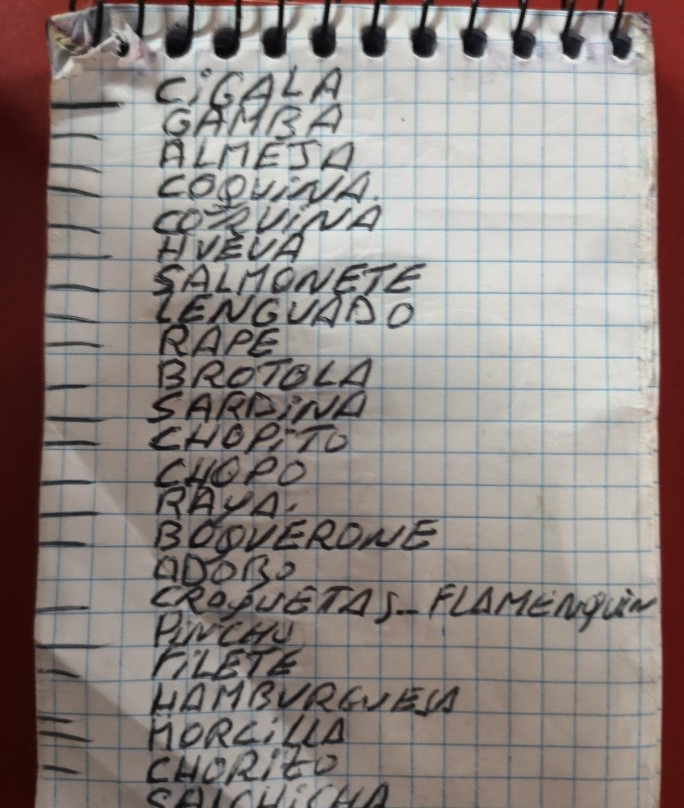 CiGALA
GAMBA
ALMEJA
COQUiNA.
CORVINA
HVEVA
SALMONETE
LENGUADO
RAPE
BROTOLA
SARDiNA
CHOPiTO
CHOPO
RAYA.
BOQVERONE
ADOBO
CROQUETAS_FLAMENQUIN
PiNCHU
FiLETE
HAMBVRGUESA
MORCiLLA
CHORiZO
SALCHiCHA